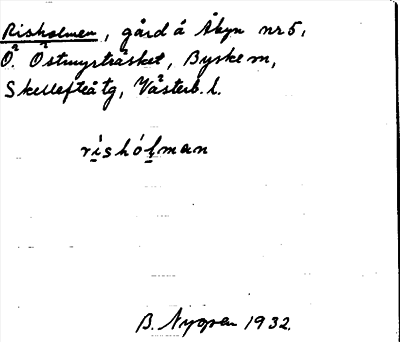 Risholmen, gård å Åbyn nr 5,
Ö. Östmyrträsket, Byske sn,
Skellefteå tg, Västerb. l.
rishólman
B. Nygren 1932.